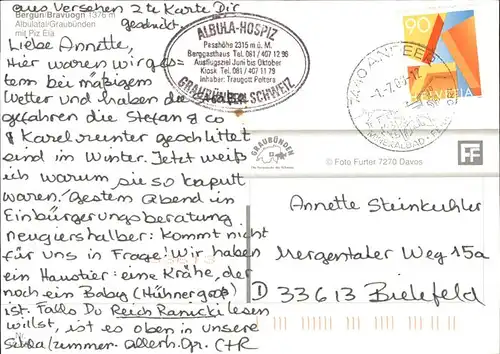 aus Versehen 2te Karte Dir
geschickt.
Bergün/Bravuogn 1376 m
Albulatal/Graubünden
mit Piz Ela
Liebe Annette,
Hier waren wir ges=
tern bei mäßigem
Wetter und haben die
gefahren die Stefan & co
& Karel runter geschlittet
sind im Winter. Jetzt weiß
ich warum sie so kaputt
waren. Gestern Abend in
Einbürgerungsberatung
neugiershalber: kommt nicht
für uns in Frage! Wir haben
ein Haustier: eine Krähe, der
noch ein Baby (Hühnergroß)
ist. Falls Du Reich Ranicki lesen
willst, ist es oben in unsere
zimmer. allerh. Gr. C+R
ALBULA-HOSPIZ
Passhöhe 2315 m ü. M.
Berggasthaus Tel. 081/407 12 98
Ausflugsziel Juni bis Oktober
Kiosk Tel. 081/407 11 79
Inhaber: Traugott Foltera
GRAUBÜNDEN SCHWEIZ
90
HELVETIA
MINERALBAD
GRAUBÜNDEN
© Foto Furter 7270 Davos
FF
Annette Steinkuhler
Mergentaler Weg 15a
D 33613 Bielefeld